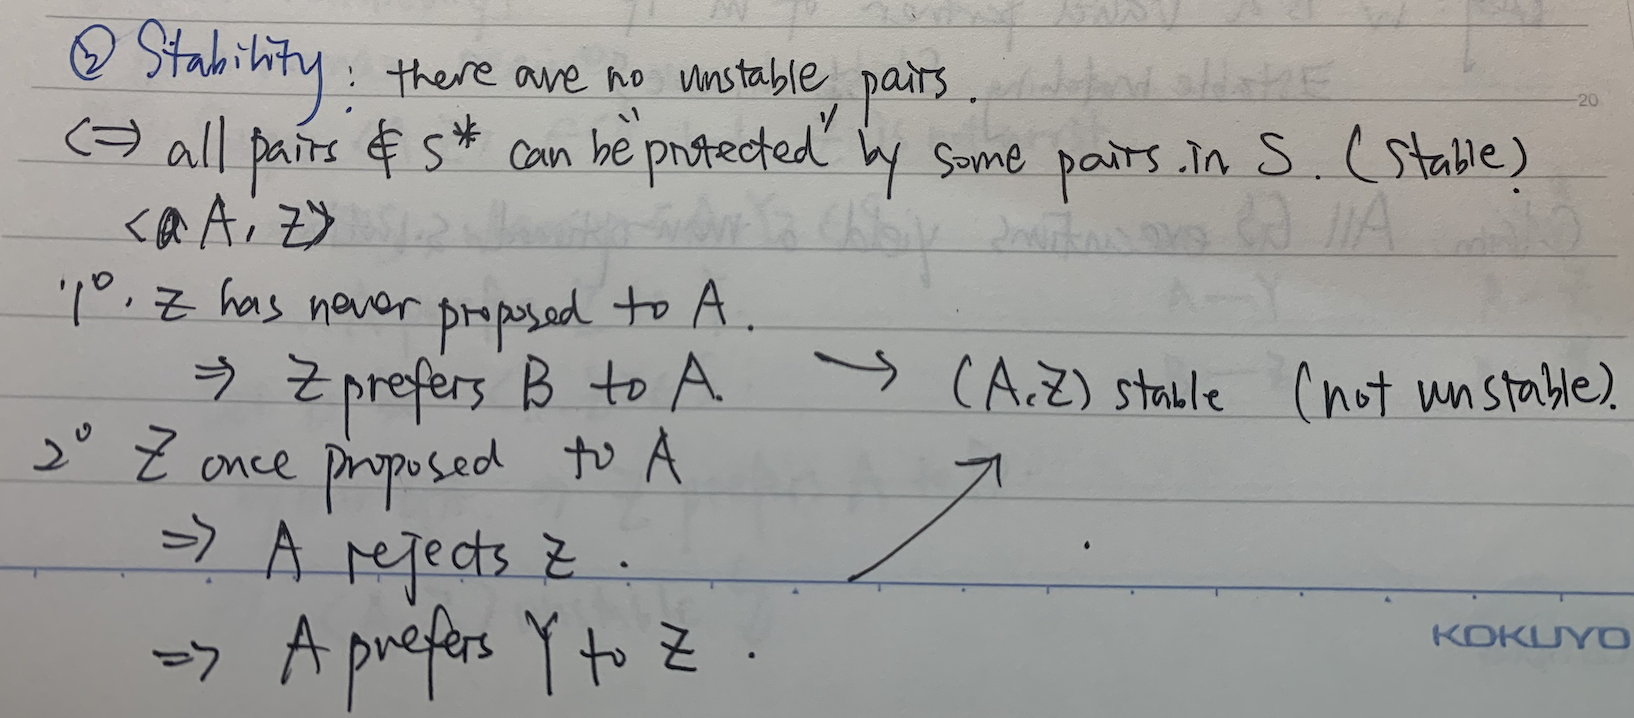 ② Stability : there are no unstable pairs.
20
<=> all pairs ∉ S* can be "protected" by some pairs in S. (stable)
<A, Z>
1°. Z has never proposed to A.
⇒ Z prefers B to A. → (A,Z) stable (not unstable).
2° Z once proposed to A
⇒ A rejects Z.
⇒ A prefers Y to Z.
KOKUYO